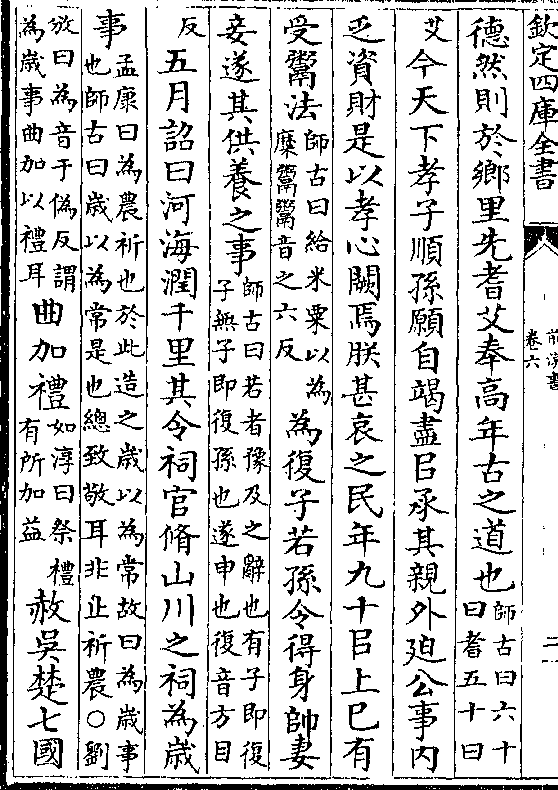 欽定四庫全書
前漢書
卷六
二
德然則於鄉里先耆艾奉高年古之道也師古曰六十
曰耆五十曰
艾今天下孝子順孫願自竭盡㠯承其親外廹公事内
乏資財是以孝心闕焉朕甚哀之民年九十㠯上已有
受鬻法師古曰給米粟以為
糜鬻鬻音之六反為復子若孫令得身帥妻
妾遂其供養之事師古曰若者豫及之辭也有子即復
子無子即復孫也遂申也復音方目
反五月詔曰河海潤千里其令祠官脩山川之祠為歳
事孟康曰為農祈也於此造之歳以為常故曰為歳事
也師古曰歳以為常是也總致敬耳非止祈農○劉
攽曰為音于偽反謂
為歳事曲加以禮耳曲加禮如淳曰祭禮
有所加益赦吳楚七國